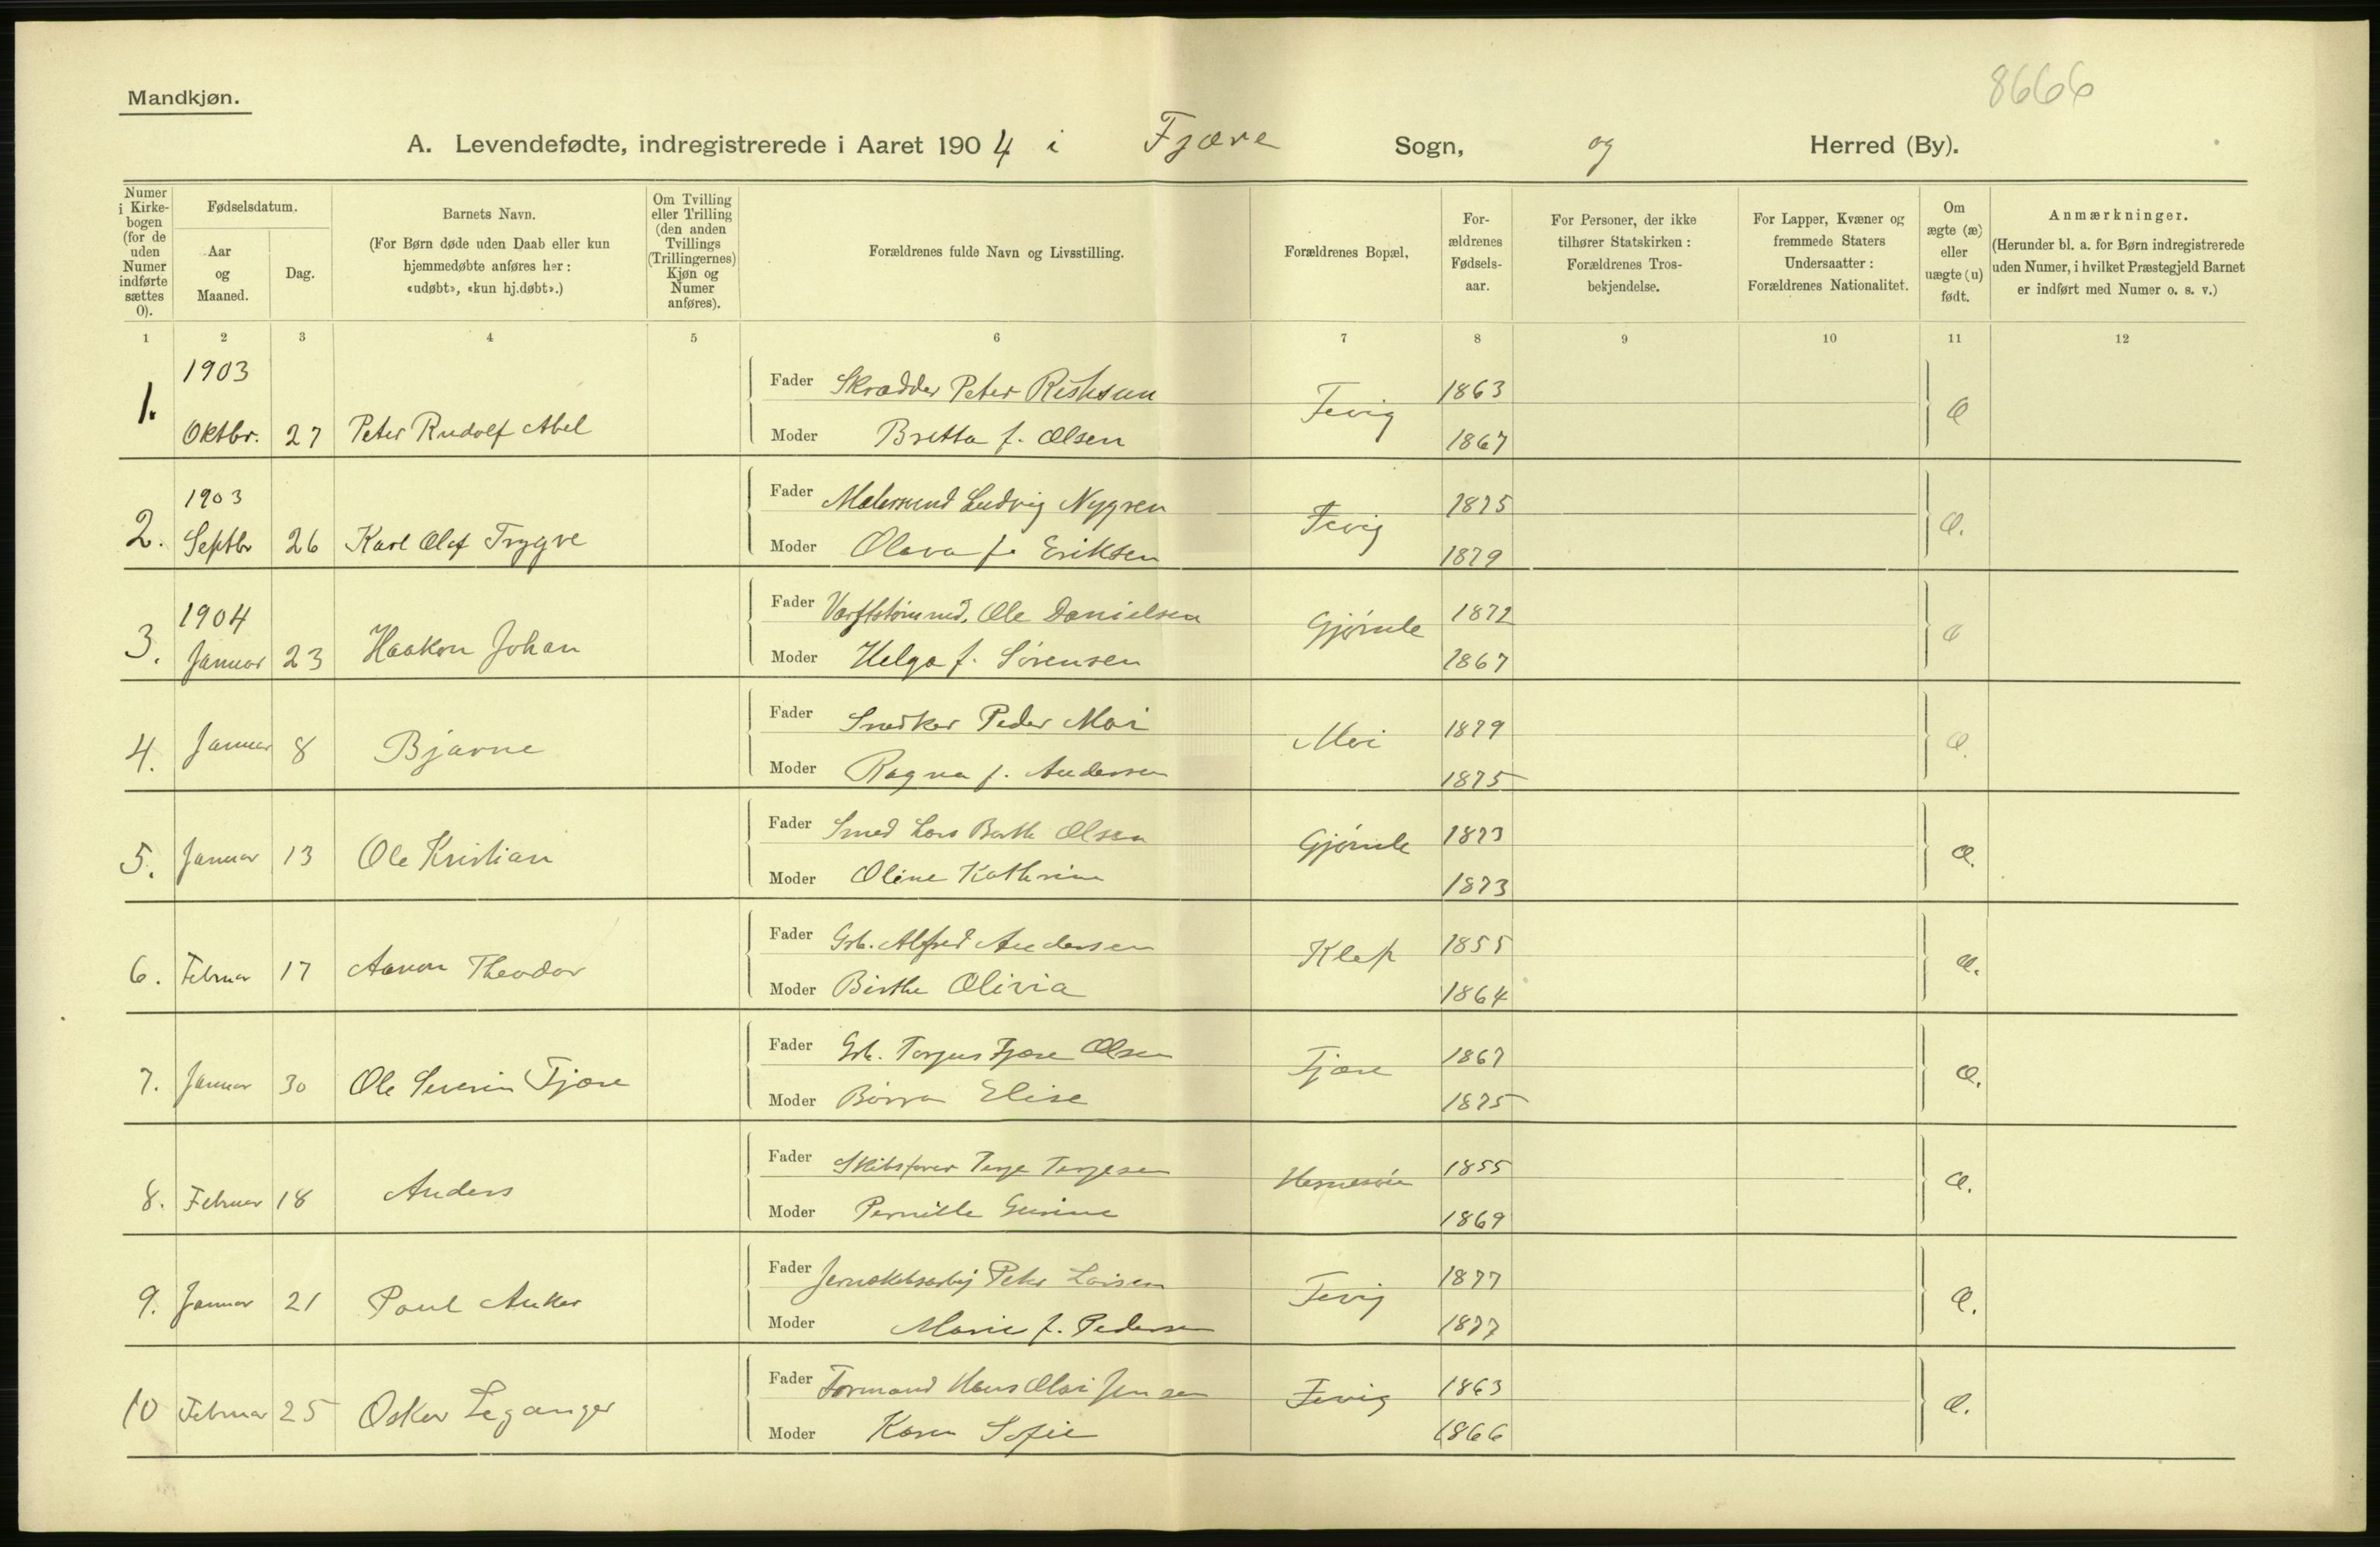 8666
Mandkjøn.
A. Levendefødte, indregistrerede i Aaret 1904 i Fjære Sogn, og Herred (By).
Numer i Kirkebogen (for de uden Numer indførte sættes 0).
Fødselsdatum.
Aar og Maaned.
Dag.
Barnets Navn.
(For Børn døde uden Daab eller kun hjemmedøbte anføres her: «udøbt», «kun hj.døbt».)
Om Tvilling eller Trilling (den anden Tvillings (Trillingernes) Kjøn og Numer anføres).
Forældrenes fulde Navn og Livsstilling.
Forældrenes Bopæl,
Forældrenes Fødselsaar.
For Personer, der ikke tilhører Statskirken: Forældrenes Trosbekjendelse.
For Lapper, Kvæner og fremmede Staters Undersaatter: Forældrenes Nationalitet.
Om ægte (æ) eller uægte (u) født.
Anmærkninger.
(Herunder bl. a. for Børn indregistrerede uden Numer, i hvilket Præstegjeld Barnet er indført med Numer o. s. v.)
1 2 3 4 5 6 7 8 9 10 11 12
1. 1903 Oktbr. 27 Peter Rudolf Abel
Fader Skrædder Peter Fevig 1863 Æ
Moder Bretta f. Olsen 1867
2. 1903 Septbr 26 Karl Olaf Trygve
Fader Malersvend Ludvig Nygren Fevig 1875 Æ.
Moder Olava f. Eriksen 1879
3. 1904 Januar 23 Haakon Johan
Fader Ole Danielsen Gjømle 1872 Æ
Moder Helga f. Sørensen 1867
4. Januar 8 Bjarne
Fader Snedker Peder Moi Moi 1879 Æ.
Moder Ragna f. Andersen 1875
5. Januar 13 Ole Kristian
Fader Smed Lars Olsen Gjømle 1873 Æ.
Moder Oline Kathrine 1873
6. Februar 17 Aanon Theodor
Fader Grb. Alfred Andersen Klep 1855 Æ.
Moder Birthe Olivia 1864
7. Januar 30 Ole Severin Fjære
Fader Grb. Torjus Fjære Olsen Fjære 1867 Æ.
Moder Elise 1875
8. Februar 18 Anders
Fader Skibsfører Terje Terjesen 1855 Æ.
Moder Pernille 1869
9. Januar 21 Paul Anker
Fader Jernskibsarbj Peter Larsen Fevig 1877 Æ.
Moder Marie f. Pedersen 1877
10 Februar 25 Oskar Leganger
Fader Formand Hans Olai Jensen Fevig 1863 Æ.
Moder Karen Sofie 1866